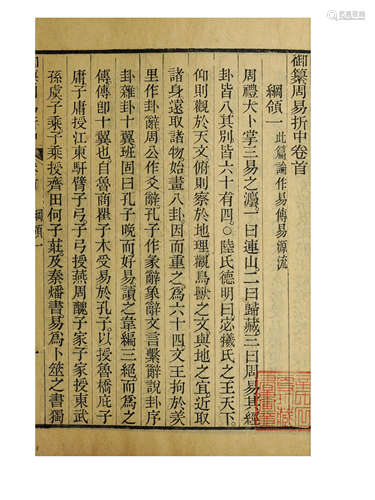 御纂周易折中卷首
綱領一 此篇論作易傳易源流
周禮大卜掌三易之灋一曰連山二曰歸藏三曰周易其經
卦皆八其別皆六十有四○陸氏德明曰宓犧氏之王天下
仰則觀於天文俯則察於地理觀鳥獸之文與地之宜近取
諸身遠取諸物始畫八卦因而重之爲六十四文王拘於羑
里作卦辭周公作爻辭孔子作彖辭象辭文言繫辭說卦序
卦雜卦十翼班固曰孔子晚而好易讀之韋編三絕而爲之
傳傳卽十翼也自魯商瞿子木受易於孔子以授魯橋庇子
庸子庸授江東馯臂子弓子弓授燕周醜子家子家授東武
孫虞子乘子乘授齊田何子莊及秦燔書易爲卜筮之書獨
綱領一